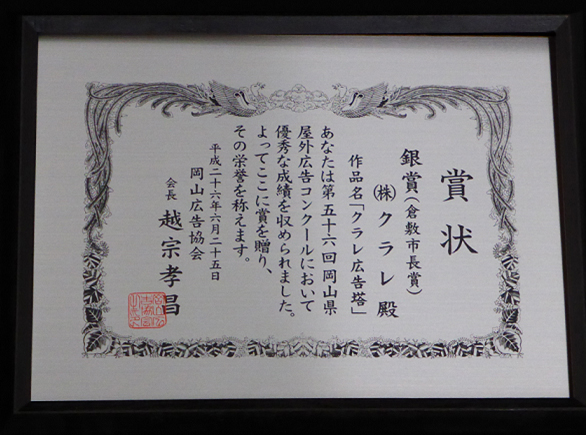 賞状
銀賞(倉敷市長賞)
㈱クラレ殿
作品名「クラレ広告塔」
あなたは第五十六回岡山県
屋外広告コンクールにおいて
優秀な成績を収められました。
よってここに賞を贈り、
その栄誉を称えます。
平成二十六年六月二十五日
岡山広告協会
会長 越宗孝昌